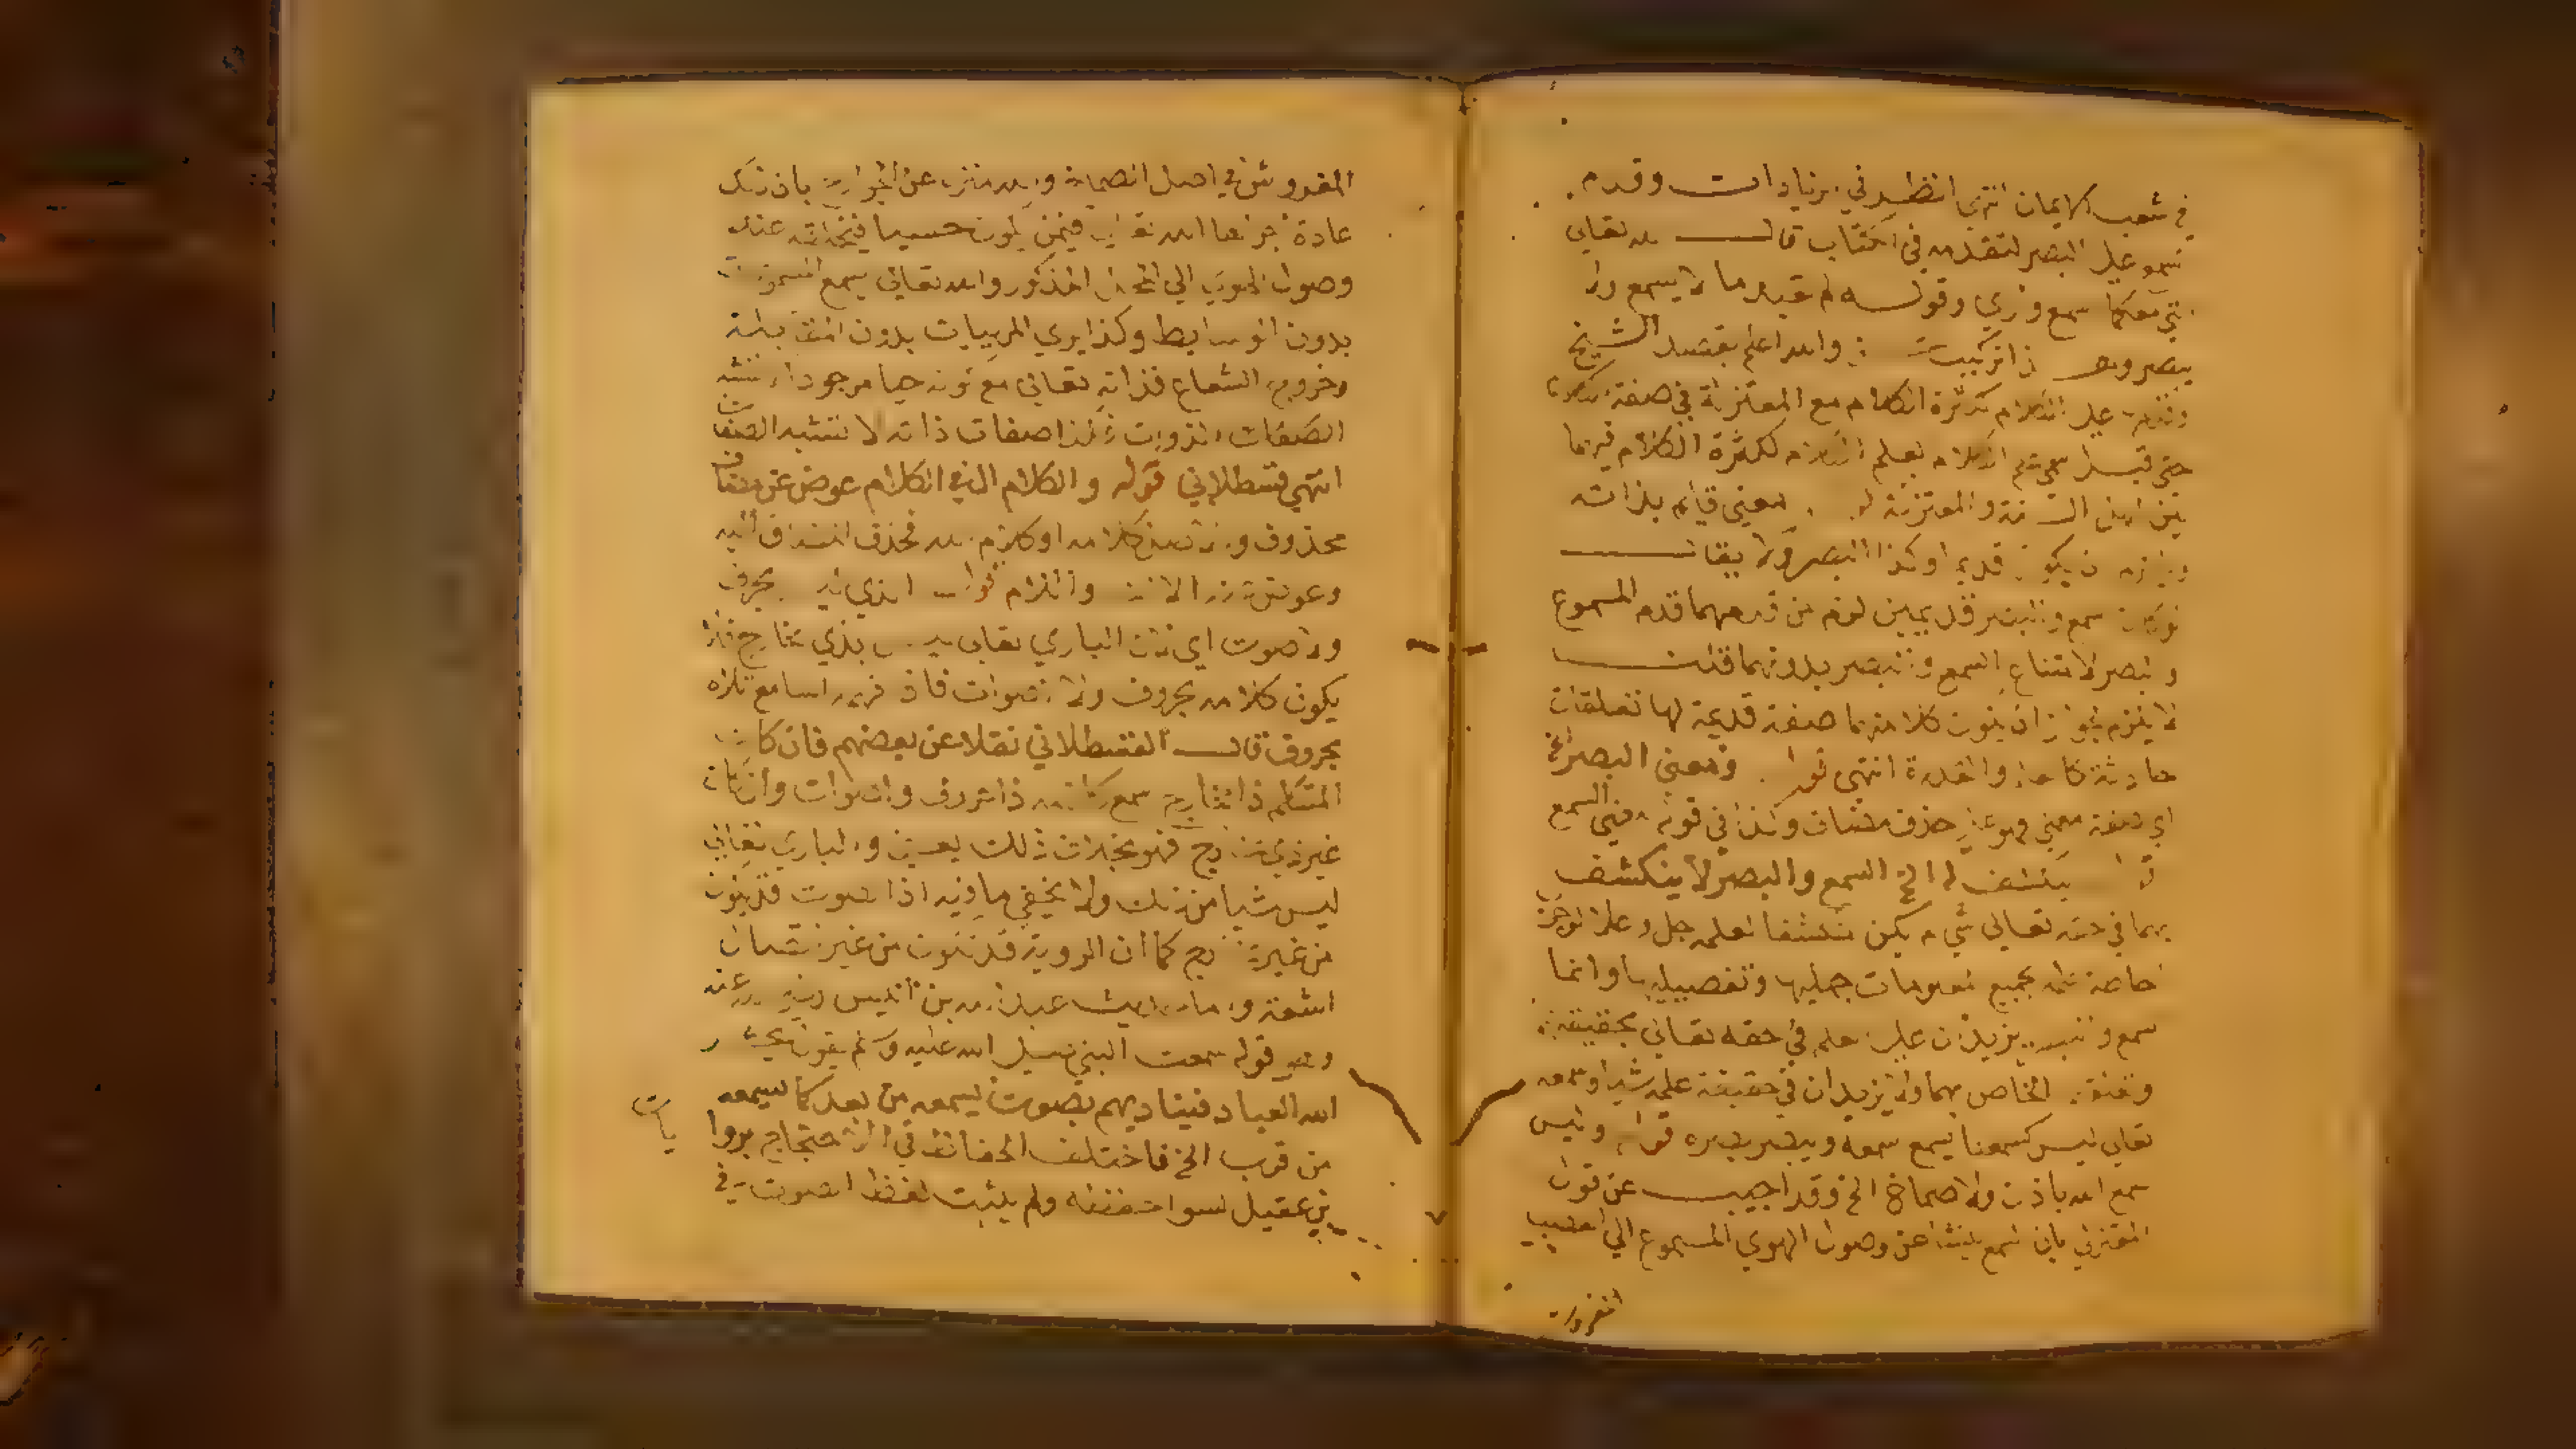 في شعب الايمان انتهى انظر في زيادات وقدم
السمع على البصر لتقدمه في الكتاب قال الله تعالى
انني معكما اسمع وارى وقوله لم تعبد ما لا يسمع ولا
يبصر وهو ذا تركيب والله اعلم بقصد الشيخ
على الكلام لكثرة الكلام مع المعتزلة في صفة الكلام
حتى قيل سمي علم الكلام بعلم الكلام لكثرة الكلام فيها
بين اهل السنة والمعتزلة معنى قايم بذاته
قديما وكذا البصر ولا يقال
لو كان السمع والبصر قديمين لزم من قدمهما قدم المسموع
والبصر لامتناع السمع والبصر بدونهما قلت
لا يلزم لجواز ان يكون كلا منهما صفة قديمة لها تعلقات
حادثة كالعلم والقدرة انتهى قوله ومعنى البصر الخ
اي صفة معنى فهو على حذف مضاف وكذا في قوله معنى السمع
قوله ينكشف له الخ السمع والبصر لا ينكشف
بهما في حقه تعالى شيء لم يكن منكشفا لعلمه جل وعلا
احاطة علمه بجميع المعلومات جمليها وتفصيلها وانما
السمع والبصر يزيدان على العلم في حقه تعالى بحقيقة
الخاص بهما ولا يزيدان في حقيقة علمه شيا وسمعه
تعالى ليس كسمعنا يسمع سمعه ويبصر بصره قوله وليس
سمع الله باذن ولا صماخ الخ وقد اجيب عن قول
المعتزلي بان السمع ينشا عن وصول الهوى المسموع الى العصب
المفروش
المفروش في اصل الصماخ والله منزه عن الجوارح بان ذلك
عادة اجراها الله تعالى فيمن يكون حيا فيخلقه عند
وصول الهوى الى المحل المذكور والله تعالى يسمع المسموعات
بدون الوسايط وكذا يرى المرييات بدون المقابلة
وخروج الشعاع فذاته تعالى مع كونه حيا موجودا لا تشبه
الذوات فكذا صفات ذاته لا تشبه الصفات
انتهى قسطلاني قوله والكلام الذي الكلام عوض عن مضاف
محذوف والاصل كلامه او كلام الله فحذف المضاف اليه
وعوض عنه الالف واللام قوله الذي ليس بحرف
ولا صوت اي لان الباري تعالى ليس بذي مخارج فلا
يكون كلامه بحروف ولا اصوات فاذا فهمه السامع تلاه
بحروف قال القسطلاني نقلا عن بعضهم فان كان
المتكلم ذا مخارج سمع كلامه ذا حروف واصوات وان كان
غير ذي مخارج فهو بخلاف ذلك والباري تعالى
ليس شيا من ذلك ولا يخفى ما فيه اذ الصوت قد يكون
من غير مخارج كما ان الروية قد تكون من غير اتصال
اشعة واما حديث عبد الله بن انيس رضي الله عنه
وهو قوله سمعت النبي صلى الله عليه وسلم يقول يحشر
الله العباد فيناديهم بصوت يسمعه من بعد كما يسمعه
من قرب الخ فاختلف الحفاظ في الاحتجاج بروايات
بن عقيل لسوء حفظه ولم يثبت لفظ الصوت في